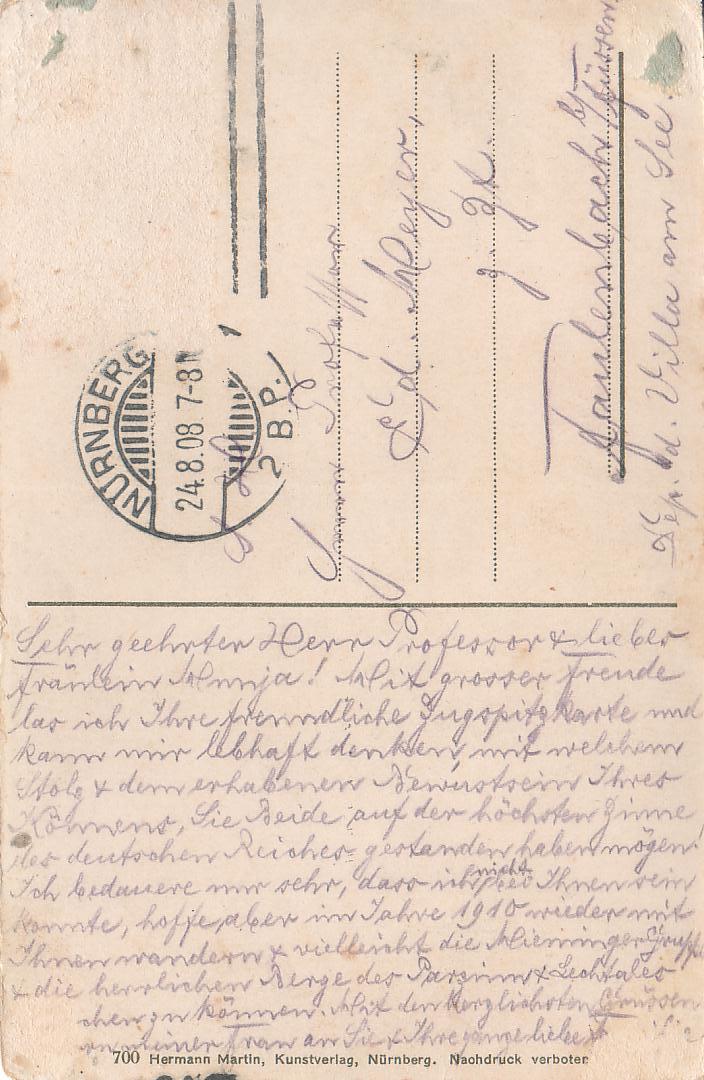 NÜRNBERG
24.8.08. 7-8 N
2 B.P.
Herrn Professor
Ed. Meyer,
z. Zt.
Faulenbach b/Füssen
Dep. d. Villa am See.
Sehr geehrter Herr Professor & liebes
Fräulein Munja! Mit grosser Freude
las ich Ihre freundliche Zugspitzkarte und
kann mir lebhaft denken, mit welchem
Stolz & dem erhabenen Bewustsein Ihres
Könnens, Sie Beide auf der höchsten Zinne
des deutschen Reiches gestanden haben mögen!
Ich bedauere nur sehr, dass ich nicht bei Ihnen sein
konnte, hoffe aber im Jahre 1910 wieder mit
Ihnen wandern & vielleicht die Mieminger Gruppe
& die herrlichen Berge des Parzinn & Lechtales
chen zu können. Mit den herzlichsten Grüssen
von meiner Frau an Sie & Ihre ganze liebe
700 Hermann Martin, Kunstverlag, Nürnberg. Nachdruck verboten